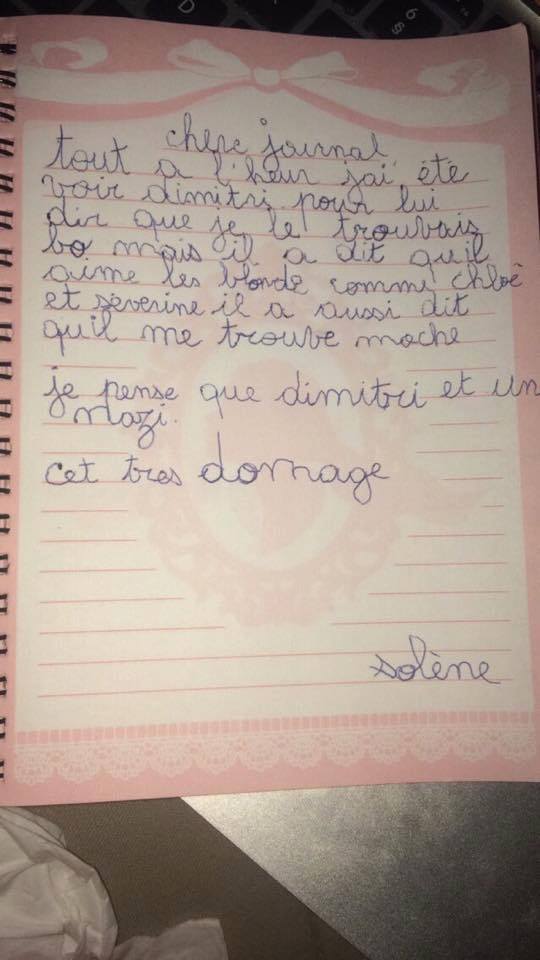 chere journal
tout a l'heur jai été
voir dimitri pour lui
dir que je le trouvais
bo mais il a dit qu'il
aime les blonde comme chloé
et séverine il a aussi dit
qu'il me trouve moche
je pense que dimitri et un
nazi.
cet tres domage
solène